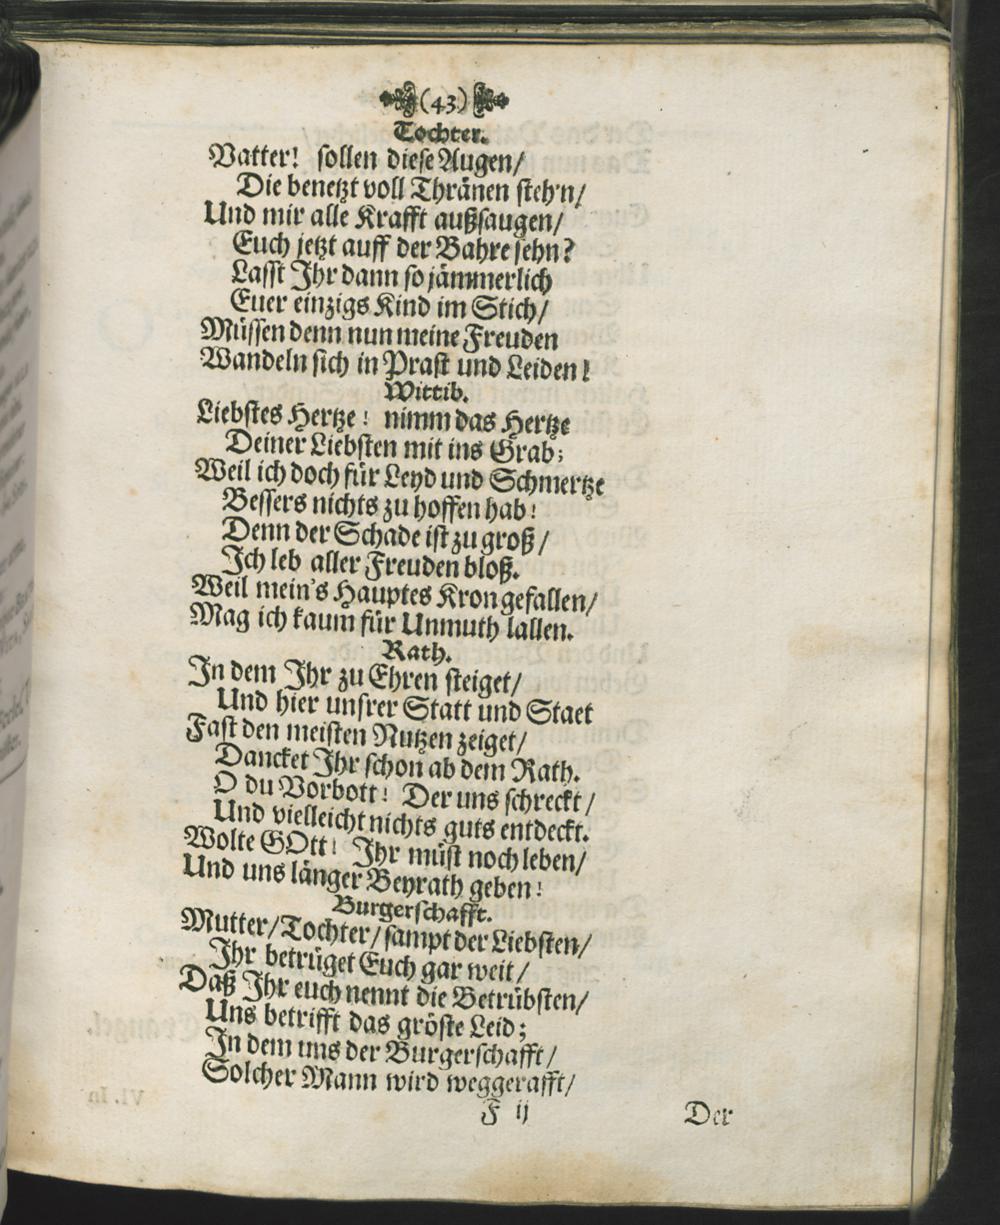 (43)
Tochter.
Vatter! sollen diese Augen/
Die benetzt voll Thränen steh'n/
Und mir alle Krafft außsaugen/
Euch jetzt auff der Bahre sehn?
Lasst Ihr dann so jämmerlich
Euer einzigs Kind im Stich/
Müssen denn nun meine Freuden
Wandeln sich in Prast und Leiden!
Wittib.
Liebstes Hertze! nimm das Hertze
Deiner Liebsten mit ins Grab;
Weil ich doch für Leyd und Schmertze
Bessers nichts zu hoffen hab!
Denn der Schade ist zu groß/
Ich leb aller Freuden bloß.
Weil mein's Hauptes Kron gefallen/
Mag ich kaum für Unmuth lallen.
Rath.
In dem Ihr zu Ehren steiget/
Und hier unsrer Statt und Staet
Fast den meisten Nutzen zeiget/
Dancket Ihr schon ab dem Rath.
O du Vorbott! Der uns schreckt/
Und vielleicht nichts guts entdeckt.
Wolte GOtt! Ihr müst noch leben/
Und uns länger Beyrath geben!
Burgerschafft.
Mutter/Tochter/sampt der Liebsten/
Ihr betrüget Euch gar weit/
Daß Ihr euch nennt die Betrübsten/
Uns betrifft das gröste Leid;
In dem uns der Burgerschafft/
Solcher Mann wird weggerafft/
F ij
Der